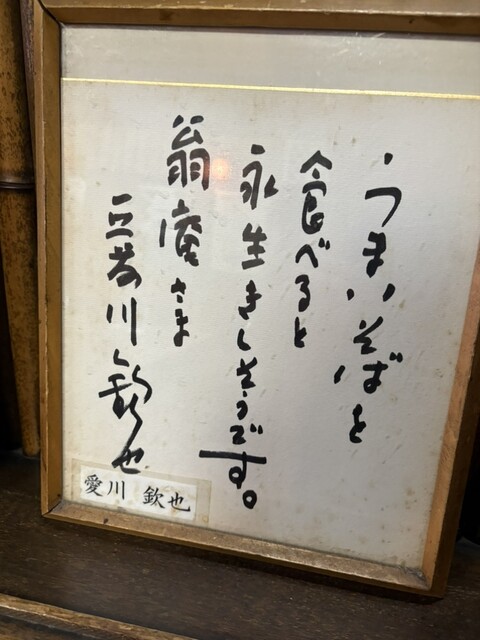 うまいそばを
食べると
永生きしそうです。
翁庵さま
愛川欽也
愛川 欽也